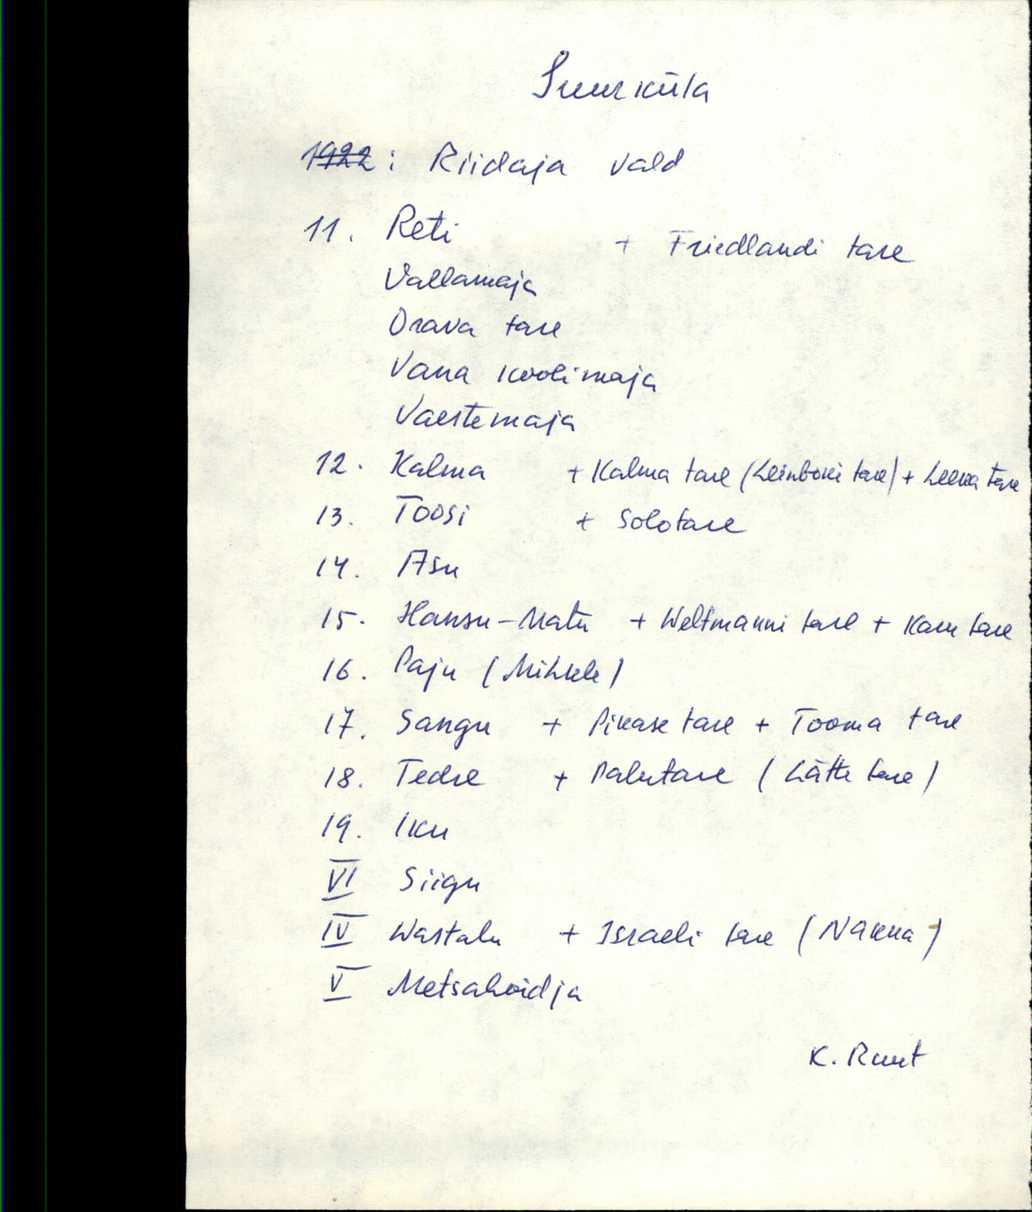 Suurküla
1922: Riidaja vald
11. Reti + Friedlandi tare
Vallamaja
Orava tare
Vana koolimaja
Vaestemaja
12. Kalma + Kalma tare (Leinboki tare) + Leena tare
13. Toosi + Solotare
14. Asu
15. Hansu-Matu + Weltmanni tare + Karu tare
16. Paju (Mihkle)
17. Sangu + Pikase tare + Tooma tare
18. Tedre + Palutare (Lätte tare)
19. Iku
VI Siigu
IV Wastalu + Israeli tare
V Metsahoidja
K. Ruut